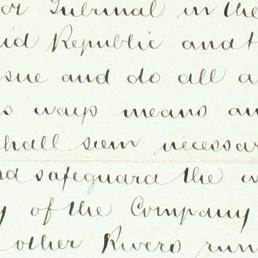 or Tribunal in the
id Republic and t
sue and do all a
s ways means an
hall seem necessar
nd safeguard the w
y of the Company
other Rivers run